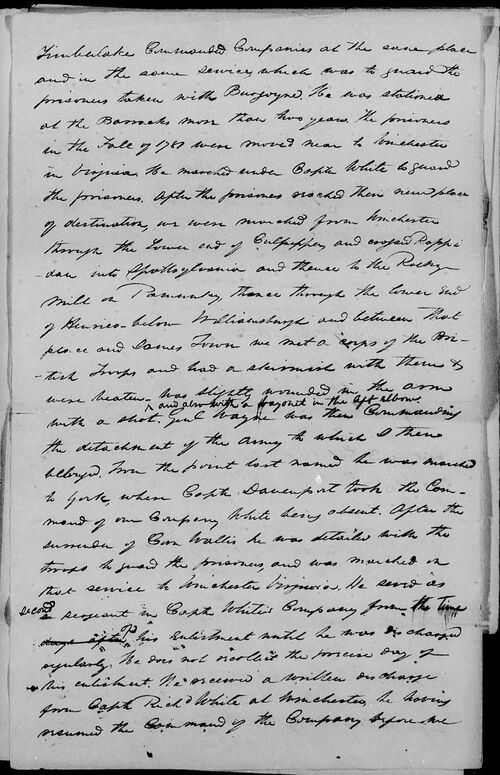 Timberlake Commanded Companies at the same place
and in the same service, which was to guard the
prisoners taken with Burgoyne. He was stationed
at the Barracks more than two years. The prisoners
in the Fall of 1780 were moved near to Winchester
in Virginia. He marched under Capt White to guard
the prisoners. After the prisoners reached their new place
of destination, we were marched from Winchester
through the Lower end of Culpepper, and crossed Rappi
-dan into Spottsylvania and thence to the Rocky
Mills on Pamunky, thence through the lower end
of Henrico below Williamsburgh and between that
place and James Town we met a corps of the Bri-
-tish Troops and had a skirmish with them &
were beaten. Was slightly wounded in the arm
and also with a bayonet in the left elbow
with a shot. Genl Wayne was then Commanding
the detachment of the army to which I then
belonged. From the point last named he was marched
to York, where Capt Davenport took the Com-
mand of our Company, White being absent. After the
surrender of Corn Wallis he was detailed with the
troops to guard the prisoners, and was marched on
that service to Winchester Virginia. He served as
second sergeant in Capt White's Company from the time
days after of his Enlistment until he was discharged
regularly. He does not recollect the precise day of
his enlistment. He received a written discharge
from Capt Richd White at Winchester, he having
resumed the Command of the Company before we